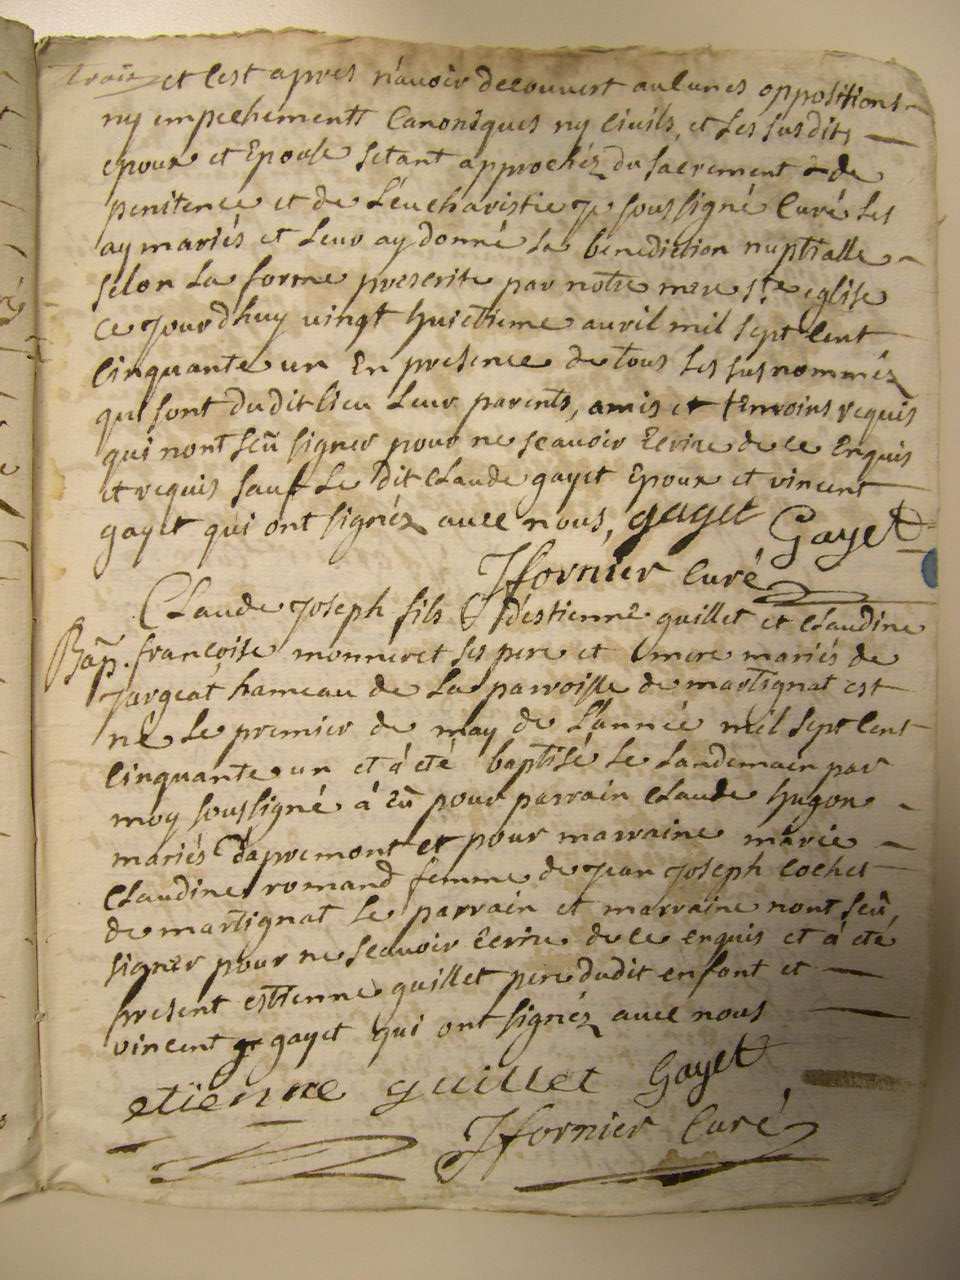 trois et c'est apres n'avoir decouvert aucunes oppositions
ny empechementt Canoniques ny Civils, et Les susdits
epoux et Epouse s'etant approchéz du sacrement de
penitence et de L'eucharistie Je soussigné Curé Les
ay mariés et Leur ay donné La benediction nuptialle
selon La forme prescrite par notre mere ste eglise
Ce Jourdhuy vingt huictieme avril mil sept Cent
Cinquante un En presence de tous Les susnomméz
qui sont dudit lieu Leur parents, amis et temoins requis
qui nont sçû signer pour ne sçavoir Ecrire de ce Enquis
et requis sauf Le dit Claude gayet Epoux et vincent
gayet qui ont signéz avec nous, gayet Gayet
Jfornier Curé
Claude Joseph fils d'estienne guillet et Claudine
Bap. françoise monneret ses pere et mere mariés de
Jargeat hameau de La parroisse de martignat est
né Le premier de may de L'année mil sept Cent
Cinquante un et á eté baptisé Le Landemain par
moy soussigné á eû pour parrain Claude hugon
mariés d'apremont et pour marraine marie
Claudine romand femme de Jean Joseph Cochet
de martignat Le parrain et marraine nont sçû
signer pour ne sçavoir Ecrire de ce enquis et á eté
present estienne guillet pere dudit enfont et
vincent gayet qui ont signéz avec nous
etienne guillet Gayet
Jfornier Curé